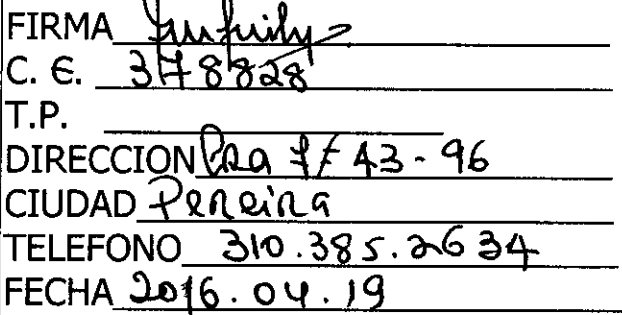 FIRMA
C. E. 378828
T.P.
DIRECCION Cra 7 # 43 - 96
CIUDAD Pereira
TELEFONO 310.385.2634
FECHA 2016.04.19